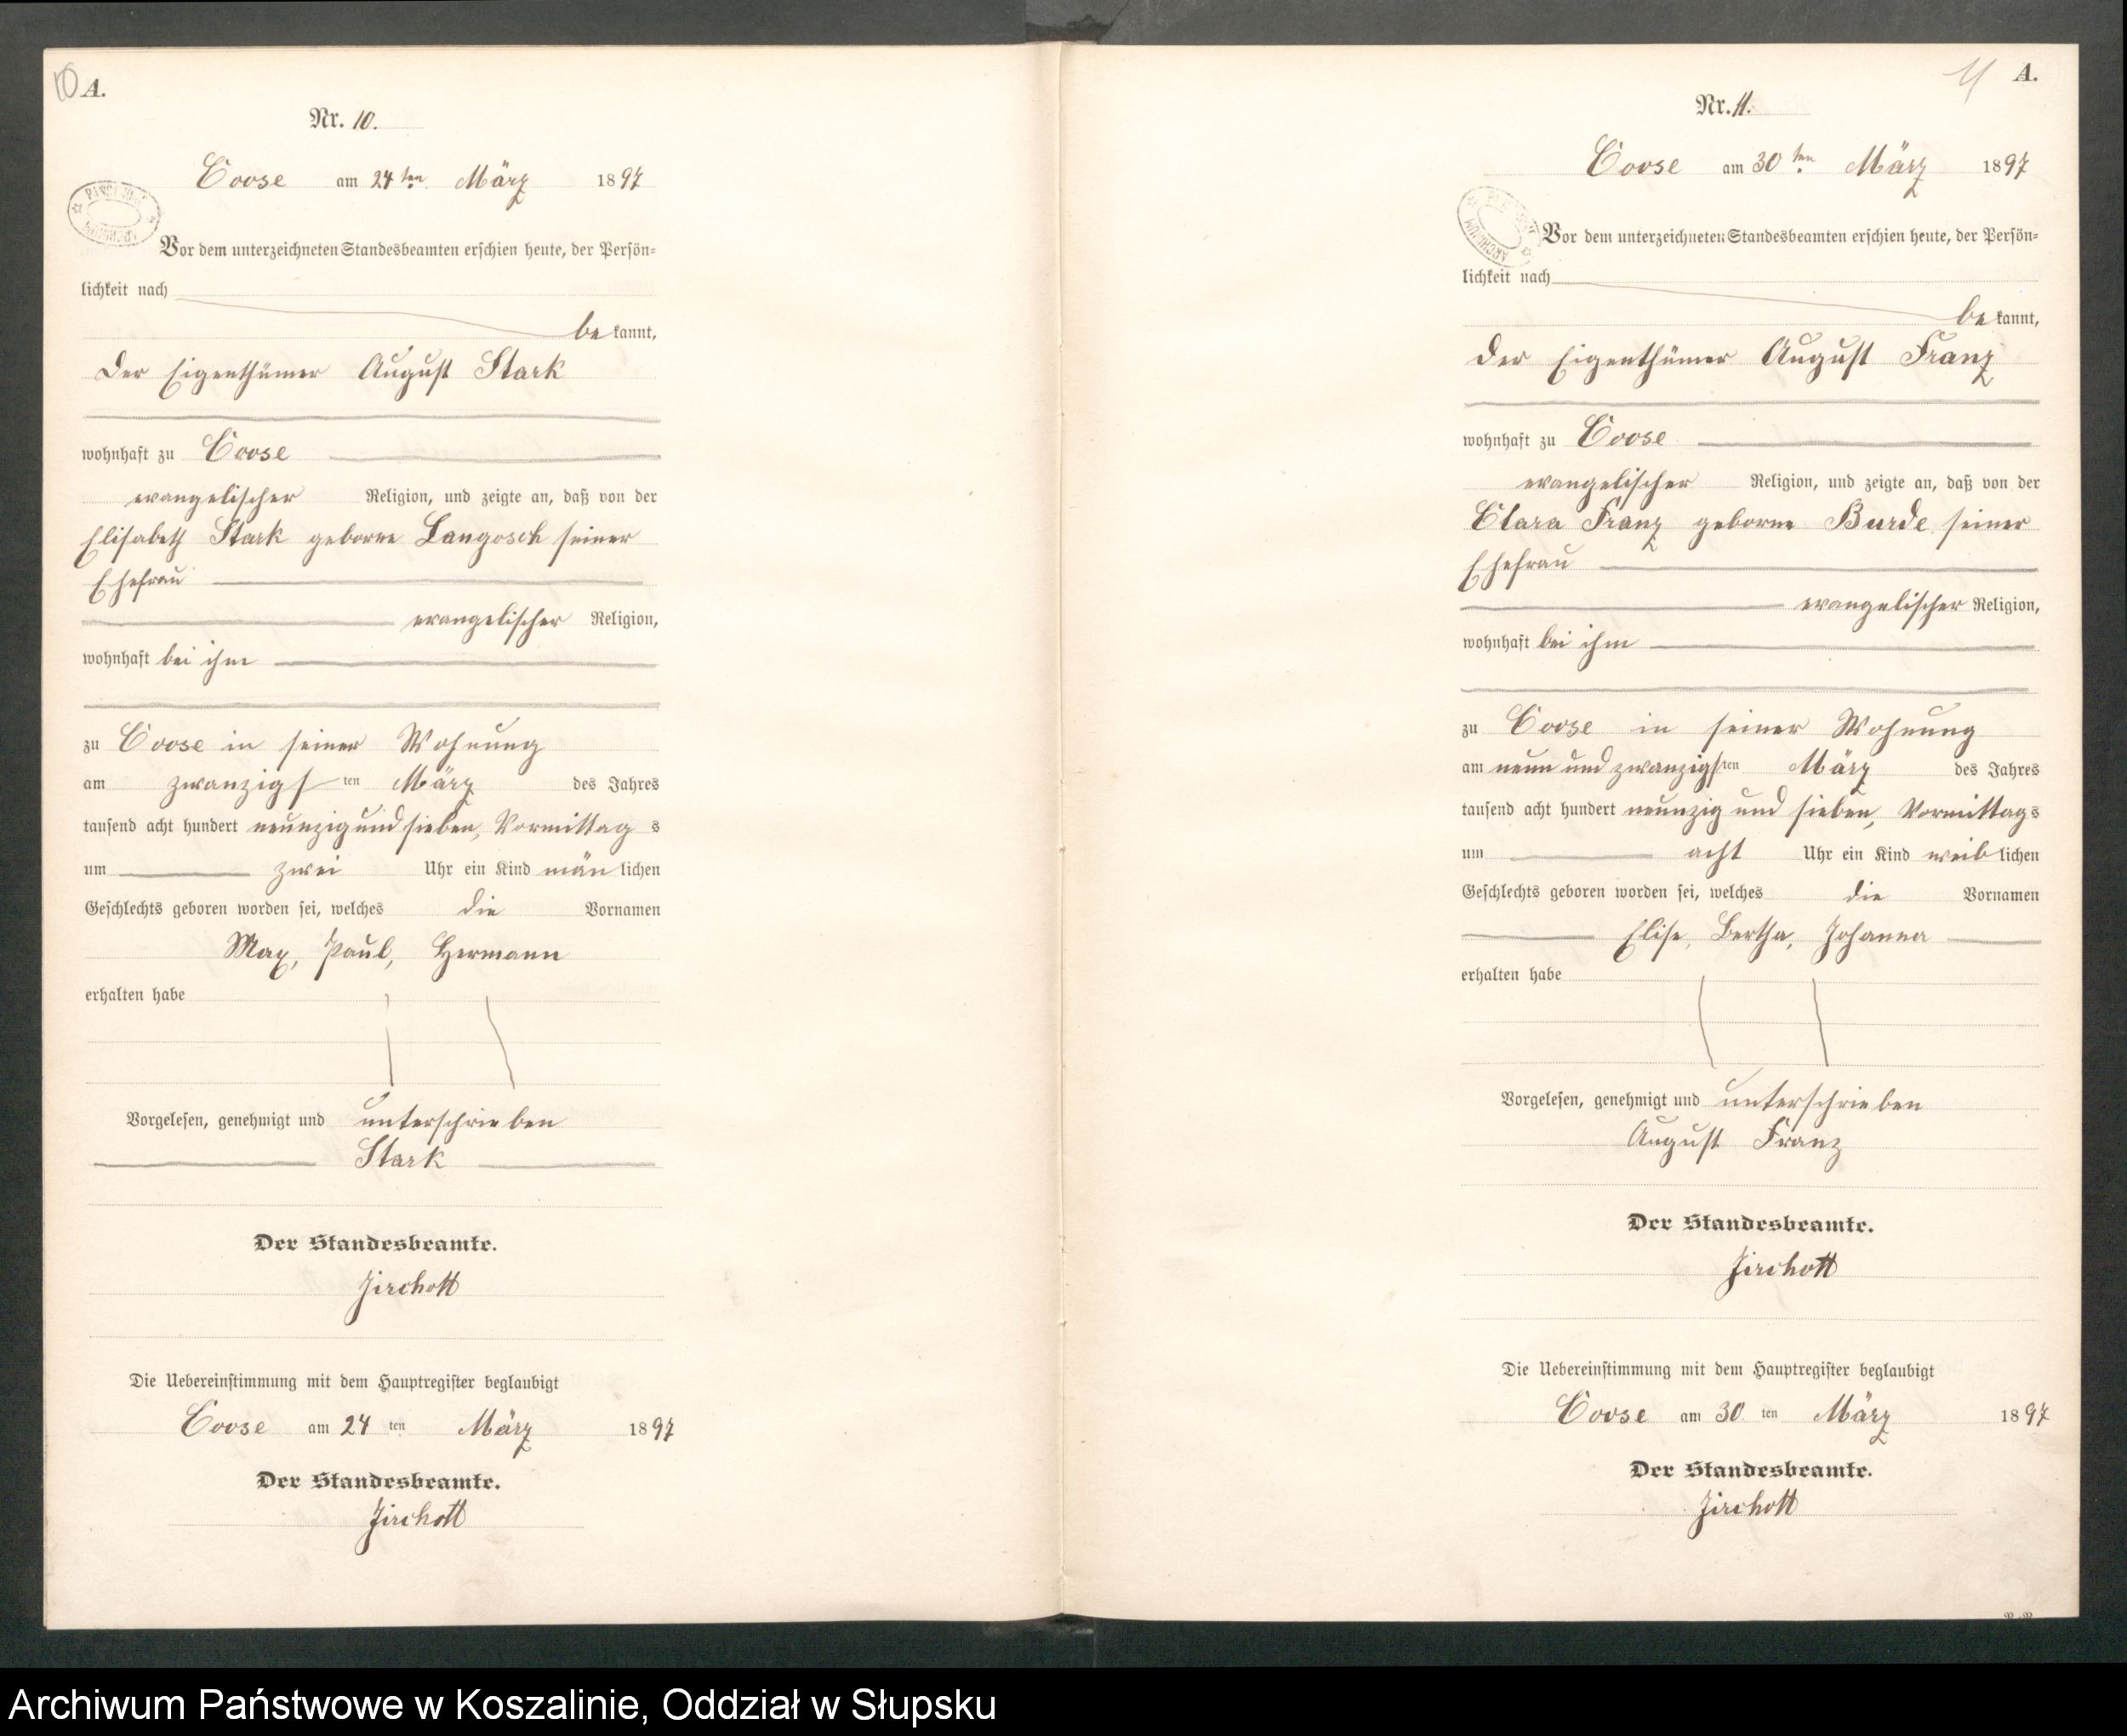 10 A.
Nr. 10.
Coose am 24ten März 1897
Vor dem unterzeichneten Standesbeamten erschien heute, der Persön-
lichkeit nach
bekannt,
der Eigenthümer August Stark
wohnhaft zu Coose
evangelischer Religion, und zeigte an, daß von der
Elisabeth Stark geborne Langosch seiner
Ehefrau
evangelischer Religion,
wohnhaft bei ihm
zu Coose in seiner Wohnung
am zwanzigsten März des Jahres
tausend acht hundert neunzig und sieben, Vormittags
um zwei Uhr ein Kind mänlichen
Geschlechts geboren worden sei, welches die Vornamen
Max, Paul, Hermann
erhalten habe
Vorgelesen, genehmigt und unterschrieben
Stark
Der Standesbeamte.
Jirchott
Die Uebereinstimmung mit dem Hauptregister beglaubigt
Coose am 24ten März 1897
Der Standesbeamte.
Jirchott
11 A.
Nr. 11.
Coose am 30ten März 1897
ARCHIWUM
Vor dem unterzeichneten Standesbeamten erschien heute, der Persön-
lichkeit nach
bekannt,
der Eigenthümer August Franz
wohnhaft zu Coose
evangelischer Religion, und zeigte an, daß von der
Clara Franz geborne Burde seiner
Ehefrau
evangelischer Religion,
wohnhaft bei ihm
zu Coose in seiner Wohnung
am neun und zwanzigsten März des Jahres
tausend acht hundert neunzig und sieben, Vormittags
um acht Uhr ein Kind weiblichen
Geschlechts geboren worden sei, welches die Vornamen
Elise, Bertha, Johanna
erhalten habe
Vorgelesen, genehmigt und unterschrieben
August Franz
Der Standesbeamte.
Jirchott
Die Uebereinstimmung mit dem Hauptregister beglaubigt
Coose am 30ten März 1897
Der Standesbeamte.
Jirchott
Archiwum Państwowe w Koszalinie, Oddział w Słupsku